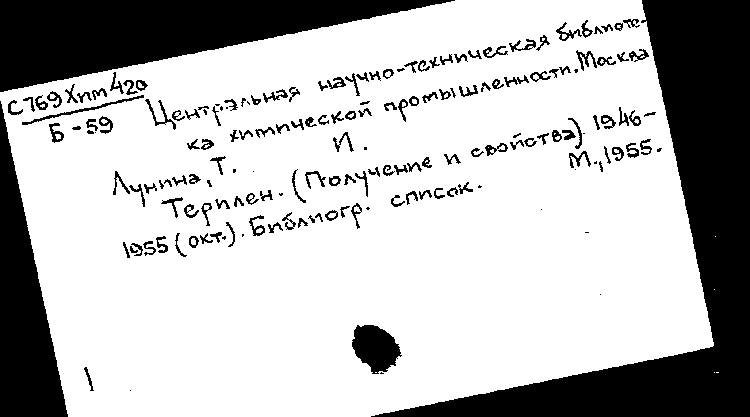 С769Хпт420
Б-59
Центральная научно-техническая библиоте-
ка химической промышленности. Москва
Лунина, Т. И.
Терилен. (Получение и свойства). 1946-
1955 (окт.). Библиогр. список. М., 1955.